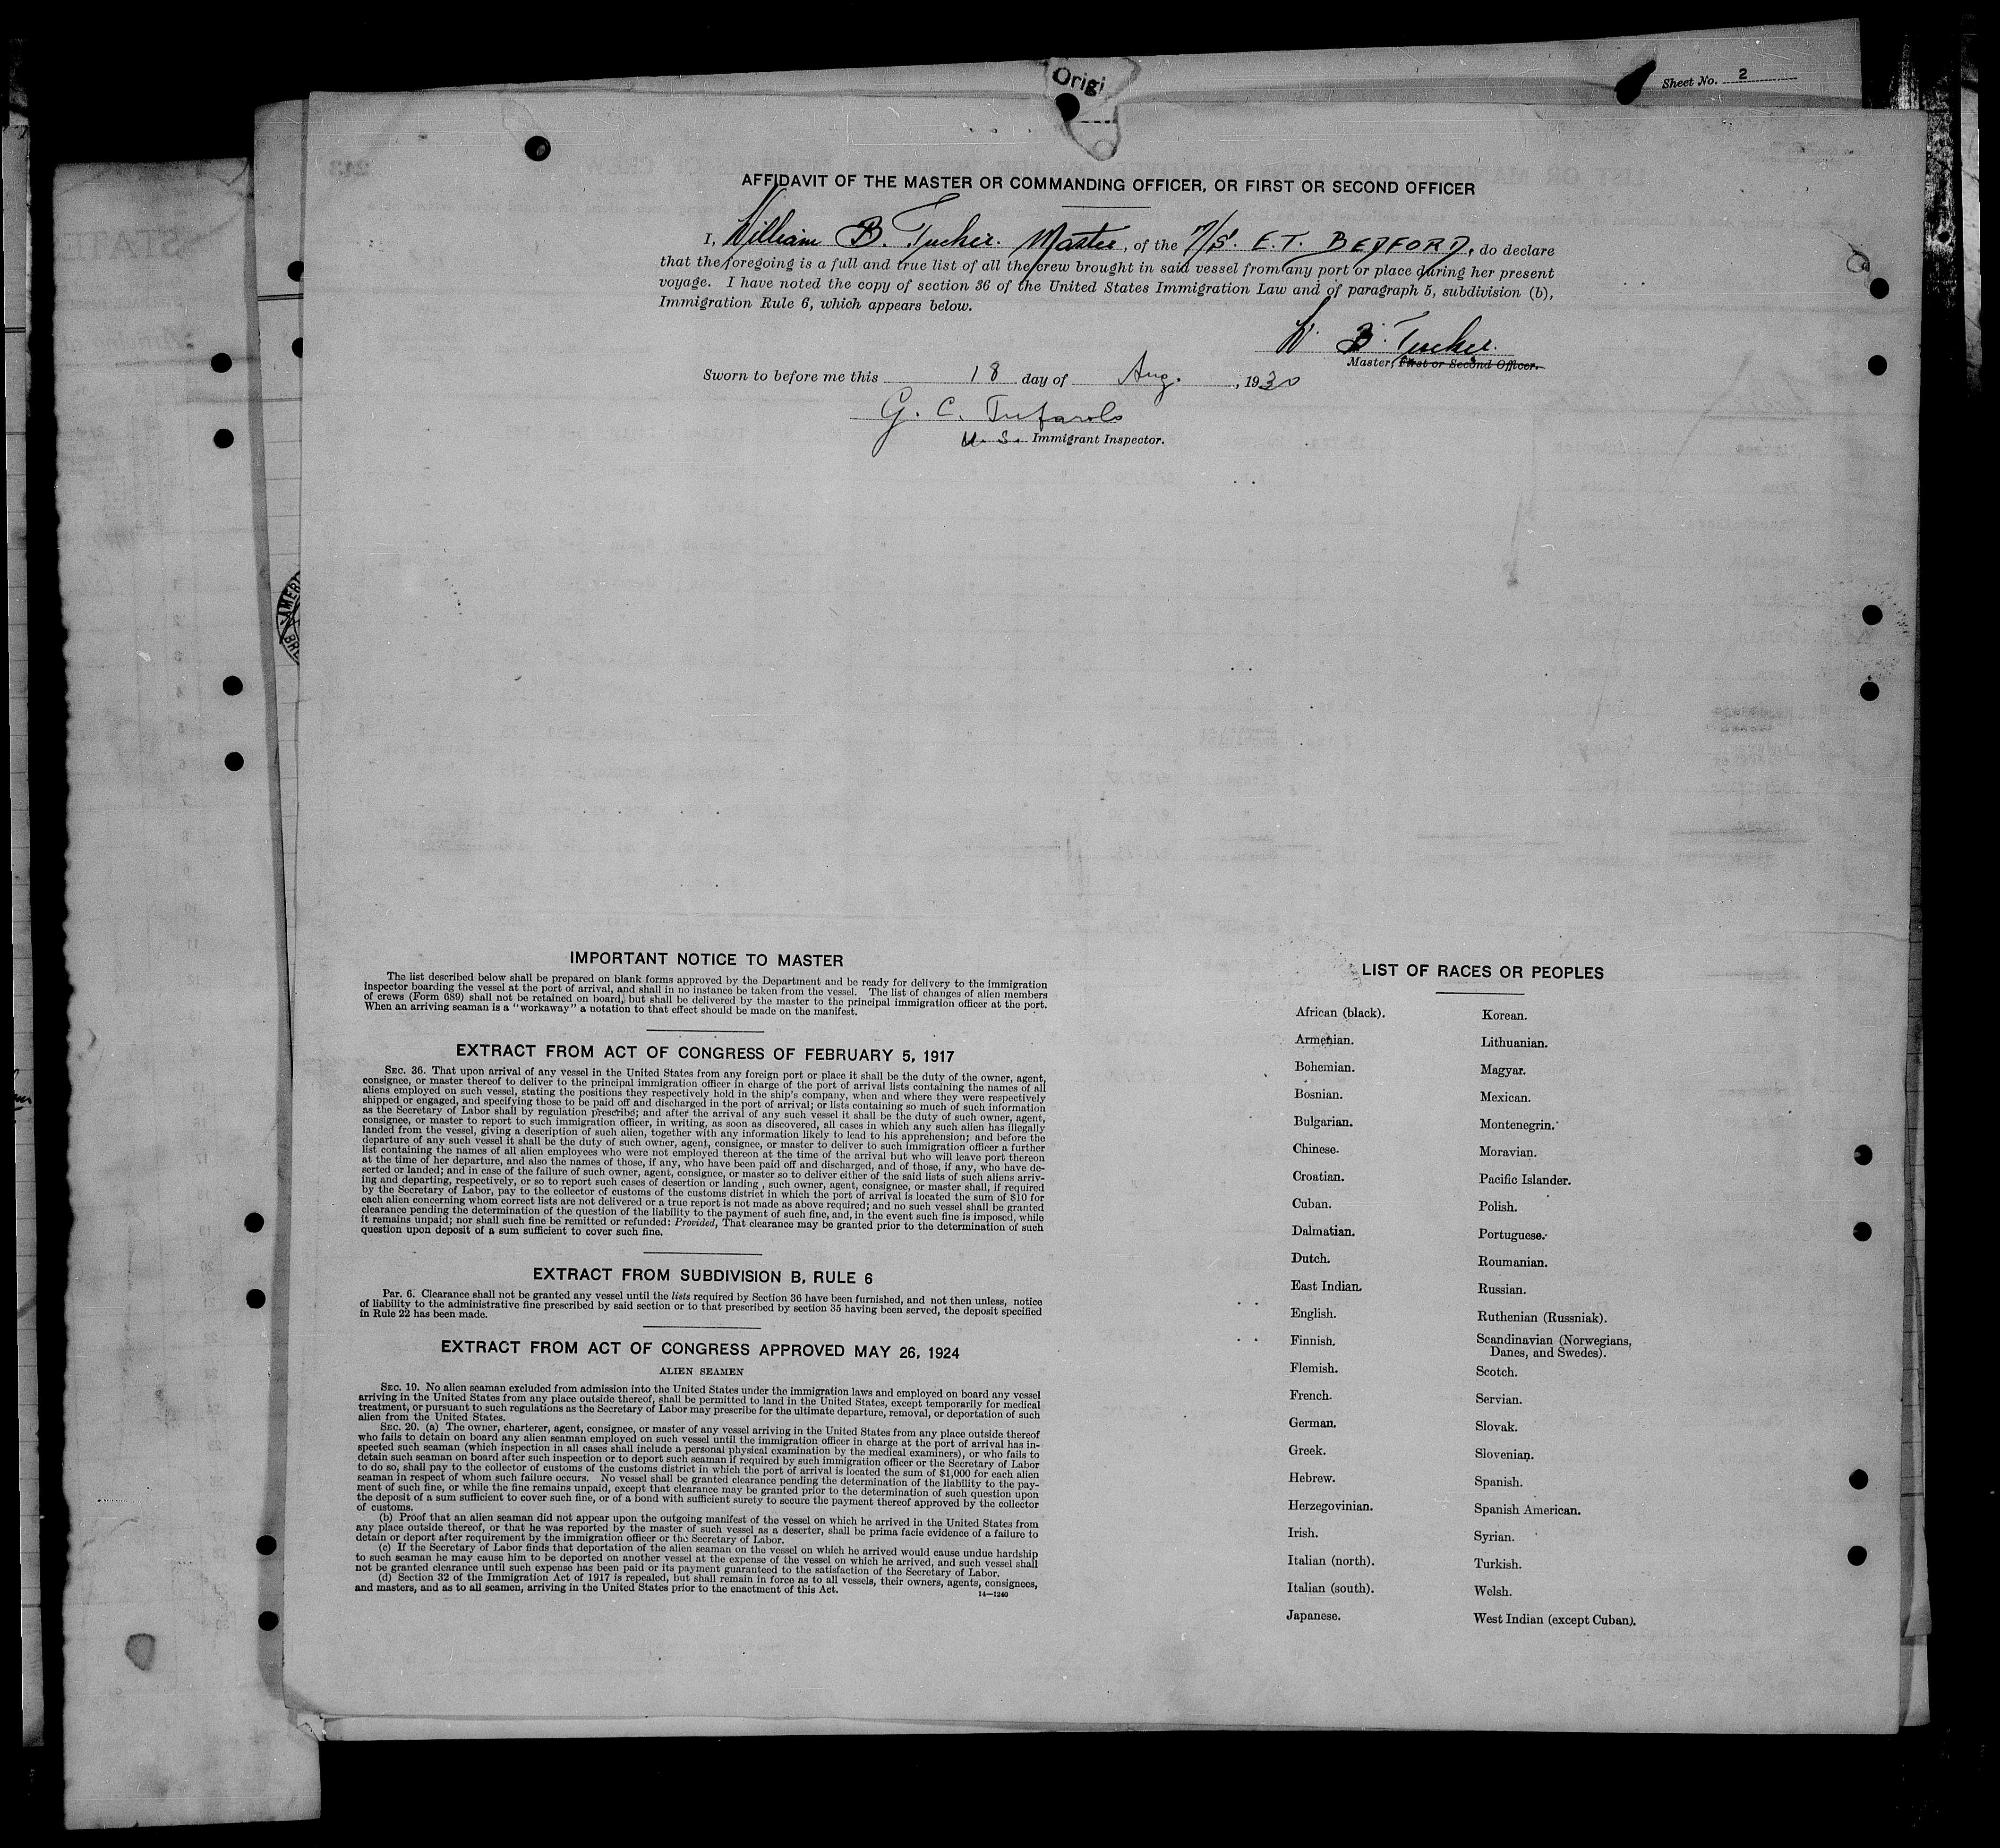 Origi
Sheet No. 2
AFFIDAVIT OF THE MASTER OR COMMANDING OFFICER, OR FIRST OR SECOND OFFICER
I, William B. Tucker. Master, of the M/S. E.T. BEDFORD, do declare
that the foregoing is a full and true list of all the crew brought in said vessel from any port or place during her present
voyage. I have noted the copy of section 36 of the United States Immigration Law and of paragraph 5, subdivision (b),
Immigration Rule 6, which appears below.
W. B. Tucker.
Master, First or Second Officer.
Sworn to before me this 18 day of Aug. , 1930
G. C.
U. S. Immigrant Inspector.
IMPORTANT NOTICE TO MASTER
The list described below shall be prepared on blank forms approved by the Department and be ready for delivery to the immigration
inspector boarding the vessel at the port of arrival, and shall in no instance be taken from the vessel. The list of changes of alien members
of crews (Form 689) shall not be retained on board, but shall be delivered by the master to the principal immigration officer at the port.
When an arriving seaman is a "workaway" a notation to that effect should be made on the manifest.
EXTRACT FROM ACT OF CONGRESS OF FEBRUARY 5, 1917
SEC. 36. That upon arrival of any vessel in the United States from any foreign port or place it shall be the duty of the owner, agent,
consignee, or master thereof to deliver to the principal immigration officer in charge of the port of arrival lists containing the names of all
aliens employed on such vessel, stating the positions they respectively hold in the ship's company, when and where they were respectively
shipped or engaged, and specifying those to be paid off and discharged in the port of arrival; or lists containing so much of such information
as the Secretary of Labor shall by regulation prescribe; and after the arrival of any such vessel it shall be the duty of such owner, agent,
consignee, or master to report to such immigration officer, in writing, as soon as discovered, all cases in which any such alien has illegally
landed from the vessel, giving a description of such alien, together with any information likely to lead to his apprehension; and before the
departure of any such vessel it shall be the duty of such owner, agent, consignee, or master to deliver to such immigration officer a further
list containing the names of all alien employees who were not employed thereon at the time of the arrival but who will leave port thereon
at the time of her departure, and also the names of those, if any, who have been paid off and discharged, and of those, if any, who have de-
serted or landed; and in case of the failure of such owner, agent, consignee, or master so to deliver either of the said lists of such aliens arriv-
ing and departing, respectively, or so to report such cases of desertion or landing , such owner, agent, consignee, or master shall, if required
by the Secretary of Labor, pay to the collector of customs of the customs district in which the port of arrival is located the sum of $10 for
each alien concerning whom correct lists are not delivered or a true report is not made as above required; and no such vessel shall be granted
clearance pending the determination of the question of the liability to the payment of such fine, and, in the event such fine is imposed, while
it remains unpaid; nor shall such fine be remitted or refunded: Provided, That clearance may be granted prior to the determination of such
question upon deposit of a sum sufficient to cover such fine.
EXTRACT FROM SUBDIVISION B, RULE 6
Par. 6. Clearance shall not be granted any vessel until the lists required by Section 36 have been furnished, and not then unless, notice
of liability to the administrative fine prescribed by said section or to that prescribed by section 35 having been served, the deposit specified
in Rule 22 has been made.
EXTRACT FROM ACT OF CONGRESS APPROVED MAY 26, 1924
ALIEN SEAMEN
SEC. 19. No alien seaman excluded from admission into the United States under the immigration laws and employed on board any vessel
arriving in the United States from any place outside thereof, shall be permitted to land in the United States, except temporarily for medical
treatment, or pursuant to such regulations as the Secretary of Labor may prescribe for the ultimate departure, removal, or deportation of such
alien from the United States.
SEC. 20. (a) The owner, charterer, agent, consignee, or master of any vessel arriving in the United States from any place outside thereof
who fails to detain on board any alien seaman employed on such vessel until the immigration officer in charge at the port of arrival has in-
spected such seaman (which inspection in all cases shall include a personal physical examination by the medical examiners), or who fails to
detain such seaman on board after such inspection or to deport such seaman if required by such immigration officer or the Secretary of Labor
to do so, shall pay to the collector of customs of the customs district in which the port of arrival is located the sum of $1,000 for each alien
seaman in respect of whom such failure occurs. No vessel shall be granted clearance pending the determination of the liability to the pay-
ment of such fine, or while the fine remains unpaid, except that clearance may be granted prior to the determination of such question upon
the deposit of a sum sufficient to cover such fine, or of a bond with sufficient surety to secure the payment thereof approved by the collector
of customs.
(b) Proof that an alien seaman did not appear upon the outgoing manifest of the vessel on which he arrived in the United States from
any place outside thereof, or that he was reported by the master of such vessel as a deserter, shall be prima facie evidence of a failure to
detain or deport after requirement by the immigration officer or the Secretary of Labor.
(c) If the Secretary of Labor finds that deportation of the alien seaman on the vessel on which he arrived would cause undue hardship
to such seaman he may cause him to be deported on another vessel at the expense of the vessel on which he arrived, and such vessel shall
not be granted clearance until such expense has been paid or its payment guaranteed to the satisfaction of the Secretary of Labor.
(d) Section 32 of the Immigration Act of 1917 is repealed, but shall remain in force as to all vessels, their owners, agents, consignees,
and masters, and as to all seamen, arriving in the United States prior to the enactment of this Act.
14—1240
LIST OF RACES OR PEOPLES
African (black).
Armenian.
Bohemian.
Bosnian.
Bulgarian.
Chinese.
Croatian.
Cuban.
Dalmatian.
Dutch.
East Indian.
English.
Finnish.
Flemish.
French.
German.
Greek.
Hebrew.
Herzegovinian.
Irish.
Italian (north).
Italian (south).
Japanese.
Korean.
Lithuanian.
Magyar.
Mexican.
Montenegrin.
Moravian.
Pacific Islander.
Polish.
Portuguese.
Roumanian.
Russian.
Ruthenian (Russniak).
Scandinavian (Norwegians,
Danes, and Swedes).
Scotch.
Servian.
Slovak.
Slovenian.
Spanish.
Spanish American.
Syrian.
Turkish.
Welsh.
West Indian (except Cuban).